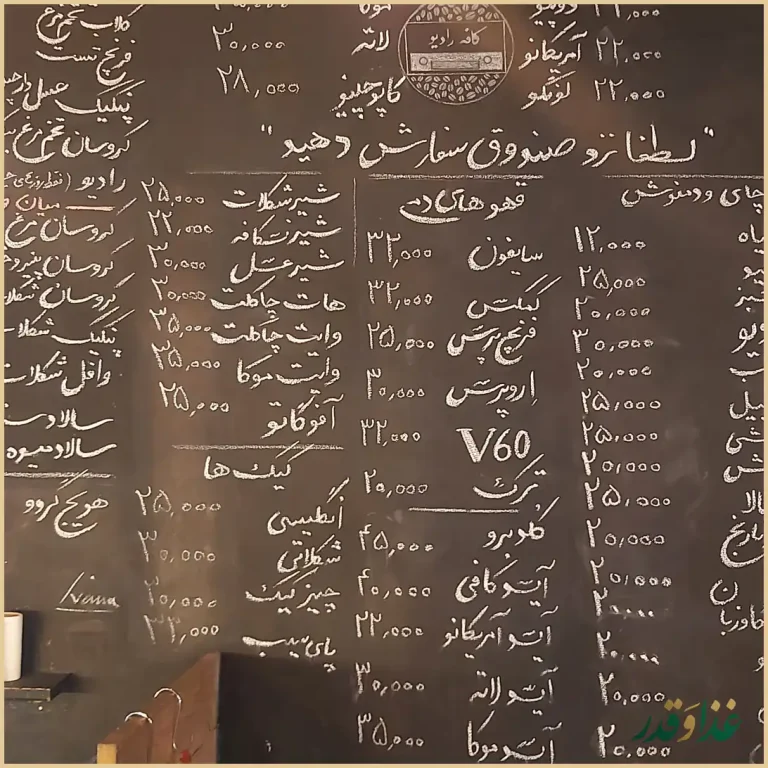 کافه رادیو
دوپیو
آمریکانو ۲۲,۰۰۰
لونگو ۲۲,۰۰۰
موکا
لاته ۳۰,۰۰۰
کاپوچینو ۲۸,۰۰۰
"لطفا نزد صندوق سفارش دهید"
چای و دمنوش
۱۲,۰۰۰
۲۵,۰۰۰
۲۰,۰۰۰
۳۰,۰۰۰
۲۰,۰۰۰
۲۵,۰۰۰
۲۵,۰۰۰
۲۰,۰۰۰
۲۵,۰۰۰
۲۰,۰۰۰
۲۰,۰۰۰
۲۰,۰۰۰
۲۰,۰۰۰
۲۰,۰۰۰
۲۰,۰۰۰
قهوه های دمی
سایفون ۳۲,۰۰۰
کمکس ۳۲,۰۰۰
فرنچ پرس ۲۵,۰۰۰
اروپرس ۳۰,۰۰۰
V60 ۳۲,۰۰۰
ترک ۲۰,۰۰۰
کلدبرو ۴۵,۰۰۰
آیسدکافی ۴۰,۰۰۰
آیسد آمریکانو ۲۲,۰۰۰
آیسد لاته ۳۰,۰۰۰
آیسد موکا ۳۵,۰۰۰
شیر شکلات ۲۵,۰۰۰
شیر نسکافه ۲۲,۰۰۰
شیر عسل ۲۰,۰۰۰
هات چاکلت ۳۰,۰۰۰
وایت چاکلت ۳۵,۰۰۰
وایت موکا ۳۵,۰۰۰
آفوگاتو ۲۵,۰۰۰
کیک ها
انگلیسی ۲۵,۰۰۰
شکلاتی ۳۰,۰۰۰
چیز کیک ۲۰,۰۰۰
پای سیب ۳۳,۰۰۰
کلاب تخم مرغ
فرنچ تست
پنکیک عسل
کروسان تخم مرغ
رادیو
میان
کروسان مرغ
کروسان پنیر
کروسان شکلا
پنکیک شکلا
وافل شکلات
سالاد
سالاد میوه
هویج گروو
غذا و قدر